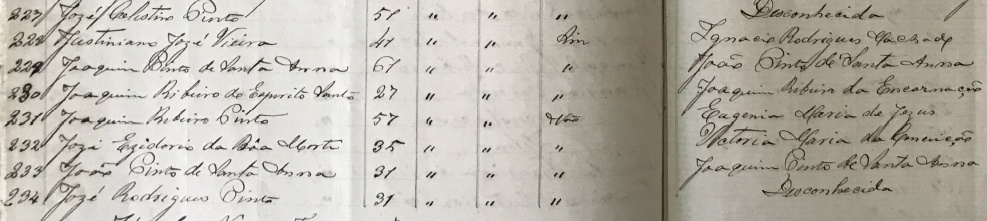 227 Jozé Celestino Pinto 57 " " " Desconhecida
228 Justiniano Jozé Vieira 47 " " Sim Ignacio Rodrigues Machado
229 Joaquim Pinto de Santa Anna 61 " " " João Pinto de Santa Anna
230 Joaquim Ribeiro do Espirito Santo 27 " " " Joaquim Ribeiro da Encarnação
231 Joaquim Ribeiro Pinto 57 " " Não Eugenia Maria de Jezus
232 Jozé Ezidorio da Bôa Morte 35 " " " Victoria Maria da Conceição
233 João Pinto de Santa Anna 31 " " " Joaquim Pinto de Santa Anna
234 Jozé Rodrigues Pinto 31 " " " Desconhecida